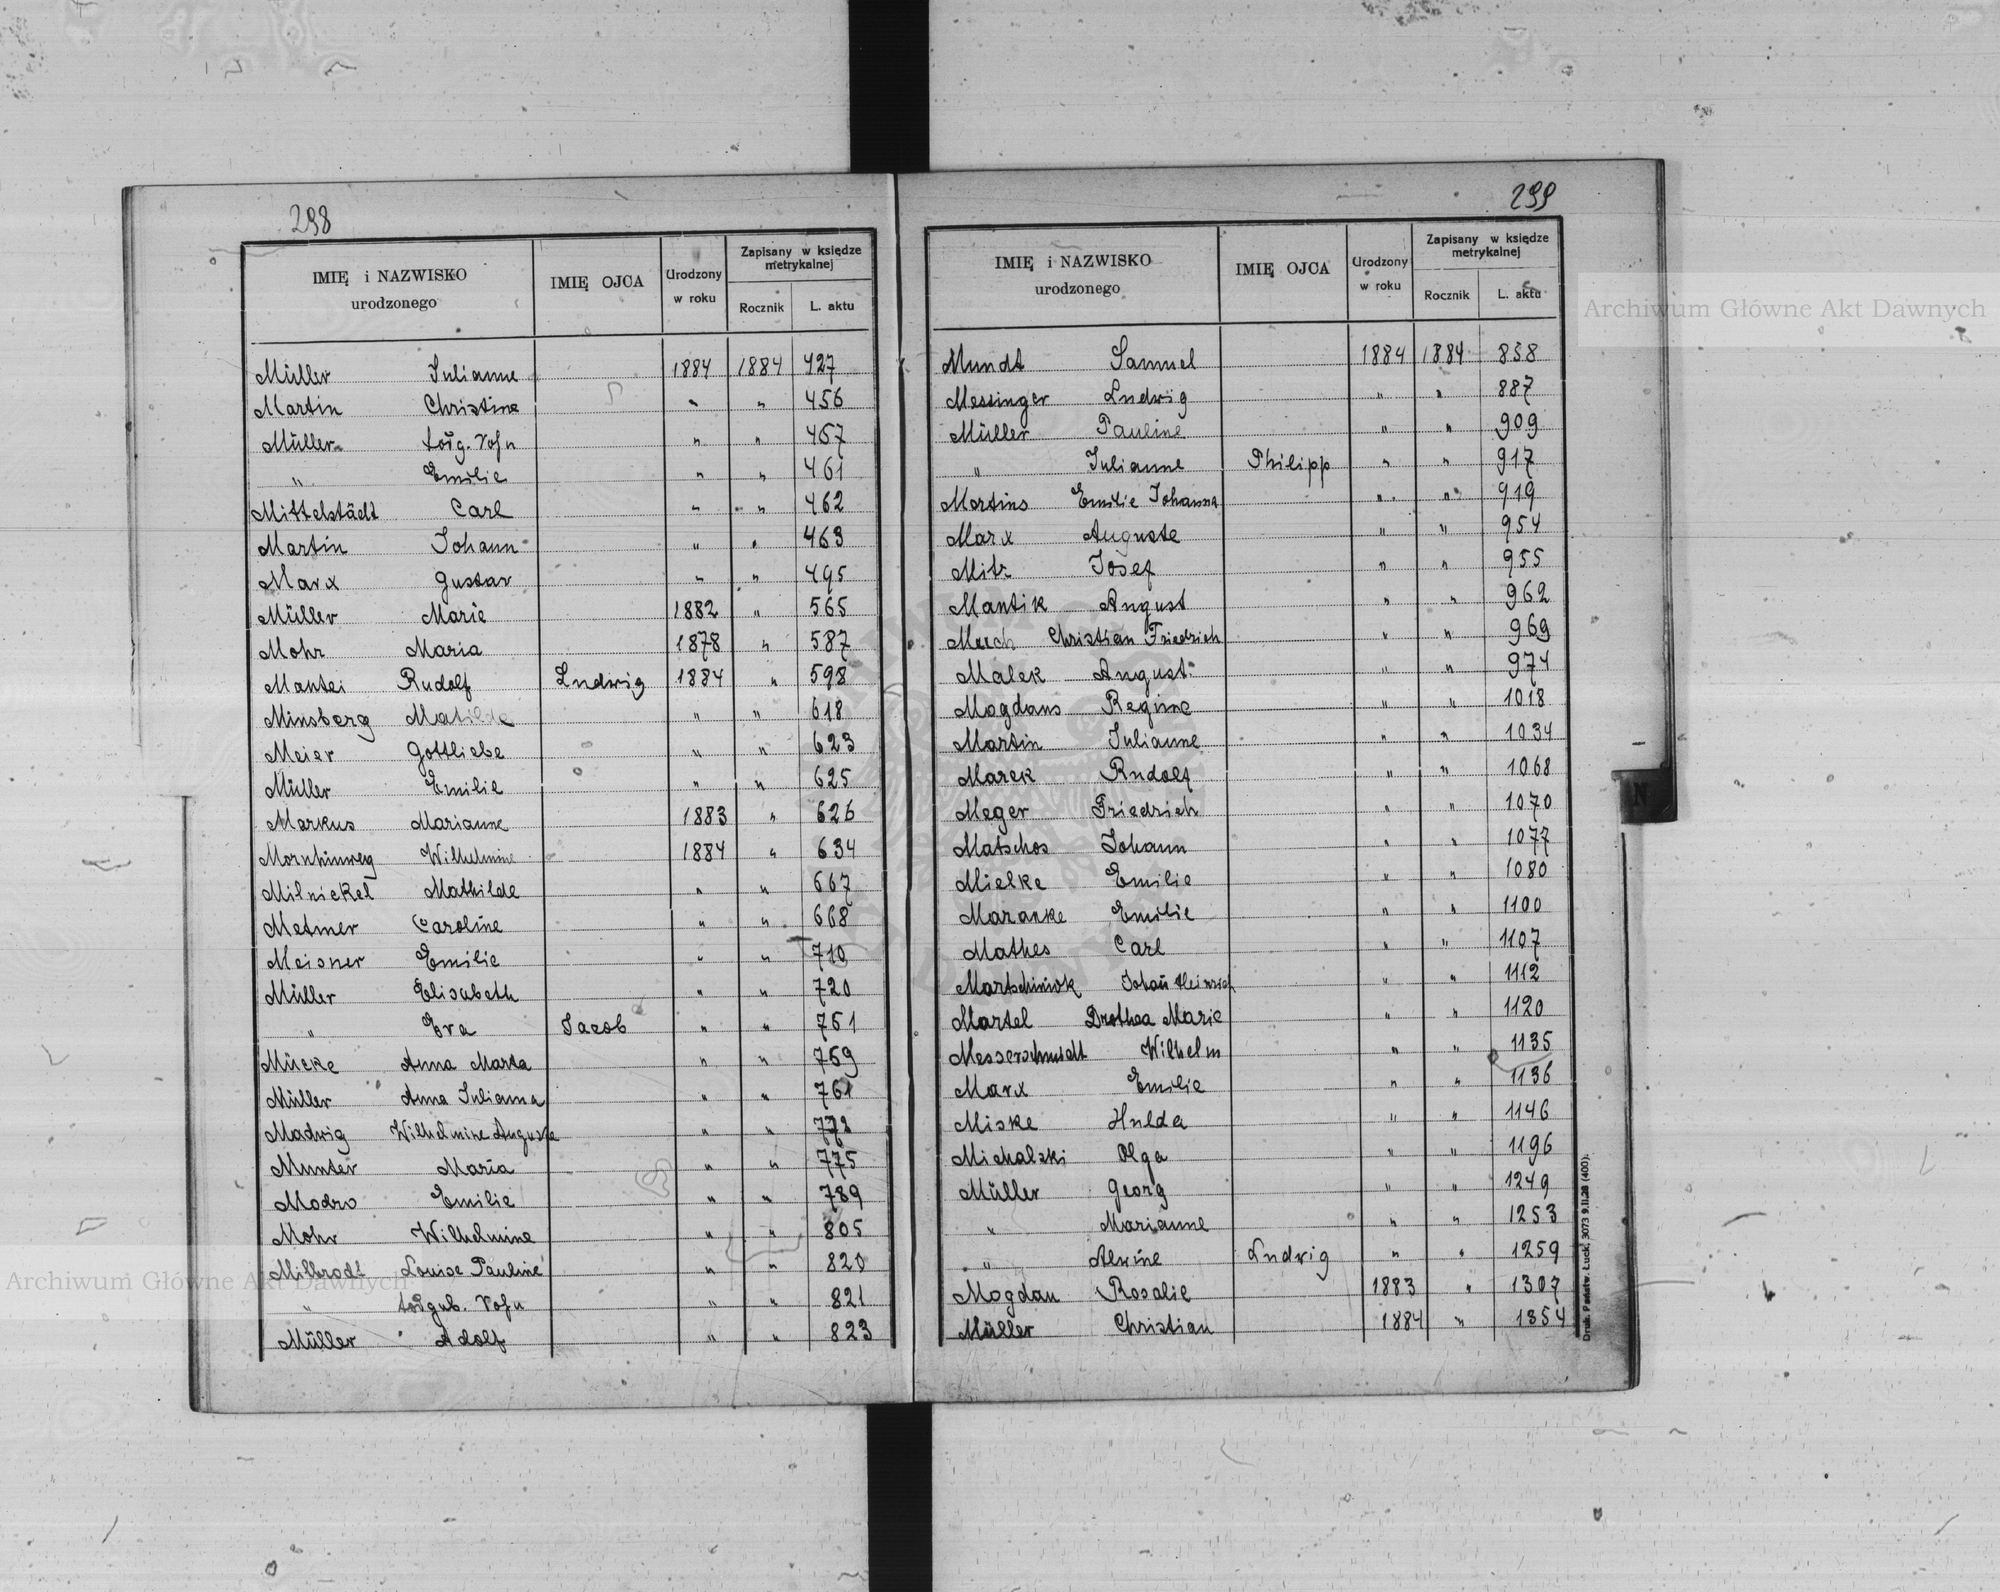 298
IMIĘ i NAZWISKO urodzonego | IMIĘ OJCA | Urodzony w roku | Zapisany w księdze metrykalnej
Rocznik | L. aktu
Müller Julianne 1884 1884 427
Martin Christine " " 456
Müller " " 457
" Emilie " " 461
Mittelstädt Carl " " 462
Martin Johann " " 463
Marx Gustav " " 495
Müller Marie 1882 " 565
Mohr Maria 1878 " 587
Mantei Rudolf Ludwig 1884 " 598
Minsberg Matilde " " 618
Meier Gottliebe " " 623
Müller Emilie " " 625
Markus Marianne 1883 " 626
Mornhinweg Wilhelmine 1884 " 634
Milnickel Mathilde " " 667
Metmer Caroline " " 668
Meisner Emilie " " 710
Müller Elisabeth " " 720
" Eva Jacob " " 751
Mücke Anna Marta " " 759
Müller Anna Julianna " " 761
Madwig Wilhelmine Auguste " " 772
Munter Maria " " 775
Modro Emilie " " 789
Mohr Wilhelmine " " 805
Milbrodt Louise Pauline " " 820
" " " 821
Müller Adolf " " 823
299
IMIĘ i NAZWISKO urodzonego | IMIĘ OJCA | Urodzony w roku | Zapisany w księdze metrykalnej
Rocznik | L. aktu
Mundt Samuel 1884 1884 858
Messinger Ludwig " " 887
Müller Pauline " " 909
" Julianne Philipp " " 917
Martins Emilie Johanna " " 919
Marx Auguste " " 954
Mitz Josef " " 955
Mantik August " " 962
Christian Friedrich " " 969
Malek August " " 974
Mogdans Regine " " 1018
Martin Julianne " " 1034
Marek Rudolf " " 1068
Meger Friedrich " " 1070
Matschos Johann " " 1077
Mielke Emilie " " 1080
Maranke Emilie " " 1100
Mathes Carl " " 1107
Martschiniok Johañ Heinrich " " 1112
Martel Drothea Marie " " 1120
Messerschmidt Wilhelm " " 1135
Marx Emilie " " 1136
Miske Hulda " " 1146
Michalski Olga " " 1196
Müller Georg " " 1249
" Marianne " " 1253
" Alwine Ludwig " " 1259
Mogdan Rosalie 1883 " 1307
Müller Christian 1884 " 1354
Druk. Państw. Łuck, 3073 9.II.28 (400).
N
Archiwum Główne Akt Dawnych
Archiwum Główne Akt Dawnych